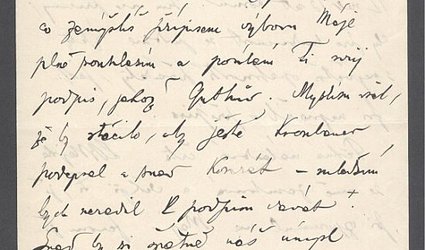 co zamýšlíš přípisem výboru Máje
plně souhlasím a posílám Ti svůj
podpis, jakož Guthův. Myslím však,
že by stačilo, aby ještě Kronbauer
podepsal a snad Konrád – mladším
bych neradil k podpisu dávat!
Snad by si špatně náš úmysl